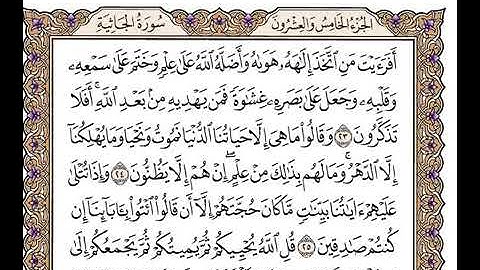 الجزء الخامس والعشرون
سورة الجاثية
أَفَرَءَيْتَ مَنِ ٱتَّخَذَ إِلَٰهَهُۥ هَوَىٰهُ وَأَضَلَّهُ ٱللَّهُ عَلَىٰ عِلْمٍ وَخَتَمَ عَلَىٰ سَمْعِهِۦ
وَقَلْبِهِۦ وَجَعَلَ عَلَىٰ بَصَرِهِۦ غِشَٰوَةً فَمَن يَهْدِيهِ مِنۢ بَعْدِ ٱللَّهِ ۚ أَفَلَا
تَذَكَّرُونَ ٢٣ وَقَالُوا۟ مَا هِىَ إِلَّا حَيَاتُنَا ٱلدُّنْيَا نَمُوتُ وَنَحْيَا وَمَا يُهْلِكُنَآ
إِلَّا ٱلدَّهْرُ ۚ وَمَا لَهُم بِذَٰلِكَ مِنْ عِلْمٍ ۖ إِنْ هُمْ إِلَّا يَظُنُّونَ ٢٤ وَإِذَا تُتْلَىٰ
عَلَيْهِمْ ءَايَٰتُنَا بَيِّنَٰتٍ مَّا كَانَ حُجَّتَهُمْ إِلَّآ أَن قَالُوا۟ ٱئْتُوا۟ بِـَٔابَآئِنَآ إِن
كُنتُمْ صَٰدِقِينَ ٢٥ قُلِ ٱللَّهُ يُحْيِيكُمْ ثُمَّ يُمِيتُكُمْ ثُمَّ يَجْمَعُكُمْ إِلَىٰ